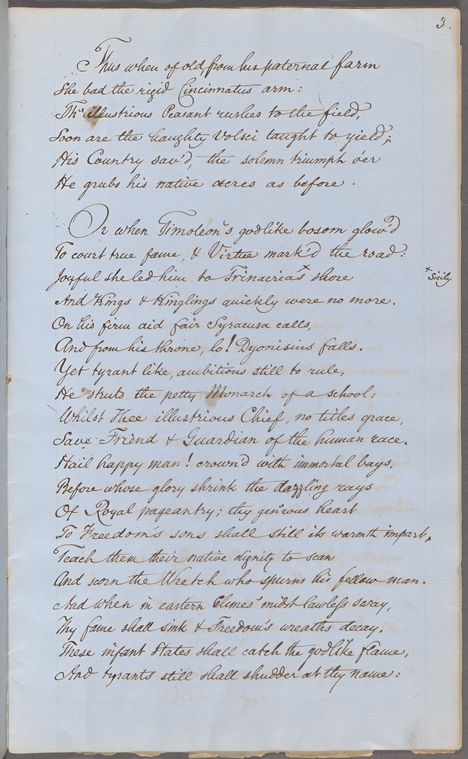 3.
Thus when of old from his paternal farm
She bad the rigid Cincinnatus arm:
Th' illustrious Peasant rushes to the field,
Soon are the haughty Volsci taught to yield;
His Country sav'd, the solemn triumph o'er
He grubs his native acres as before.
Or when Timoleon's godlike bosom glow'd
To court true fame, & Virtue mark'd the road:
Joyful she led him to Trinacria's + shore
+ Sicily
And Kings & Kinglings quickly were no more.
On his firm aid fair Syracusa calls,
And from his throne, lo! Dyonisius falls.
Yet tyrant like, ambitious still to rule,
He struts the petty Monarch of a school:
Whilst Thee illustrious Chief, no titles grace,
Save Friend & Guardian of the human race.
Hail happy man! crown'd with immortal bays,
Before whose glory shrink the dazzling rays
Of Royal pageantry; thy gen'rous heart
To Freedom's sons shall still its warmth impart,
Teach them their native dignity to scan
And scorn the Wretch who spurns his fellow man.
And when in eastern Climes midst lawless sway,
Thy fame shall sink & Freedom's wreaths decay.
These infant States shall catch the godlike flame,
And tyrants still shall shudder at thy name: